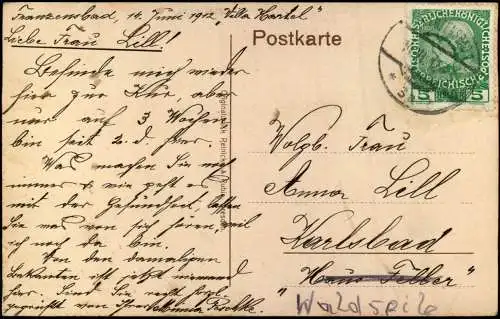 Franzensbad, 14. Juni 1912 "Villa Hartel"
Liebe Frau Lill!
Befinde mich wieder
hier zur Kur, aber
nur auf 3 Wochen
bin seit 2. d. hier.
Was machen Sie noch
immer &. wie geht es
mit der Gesundheit, lassen
Sie was von sich hören, weil
ich noch da bin.
Von den damaligen
Bekannten ist jetzt niemand
hier. Sind Sie recht herzl.
gegrüßt von Ihrer
Postkarte
5 5
Wolgb. Frau
Anna Lill
Karlsbad
"Haus Feller"
Waldzeile